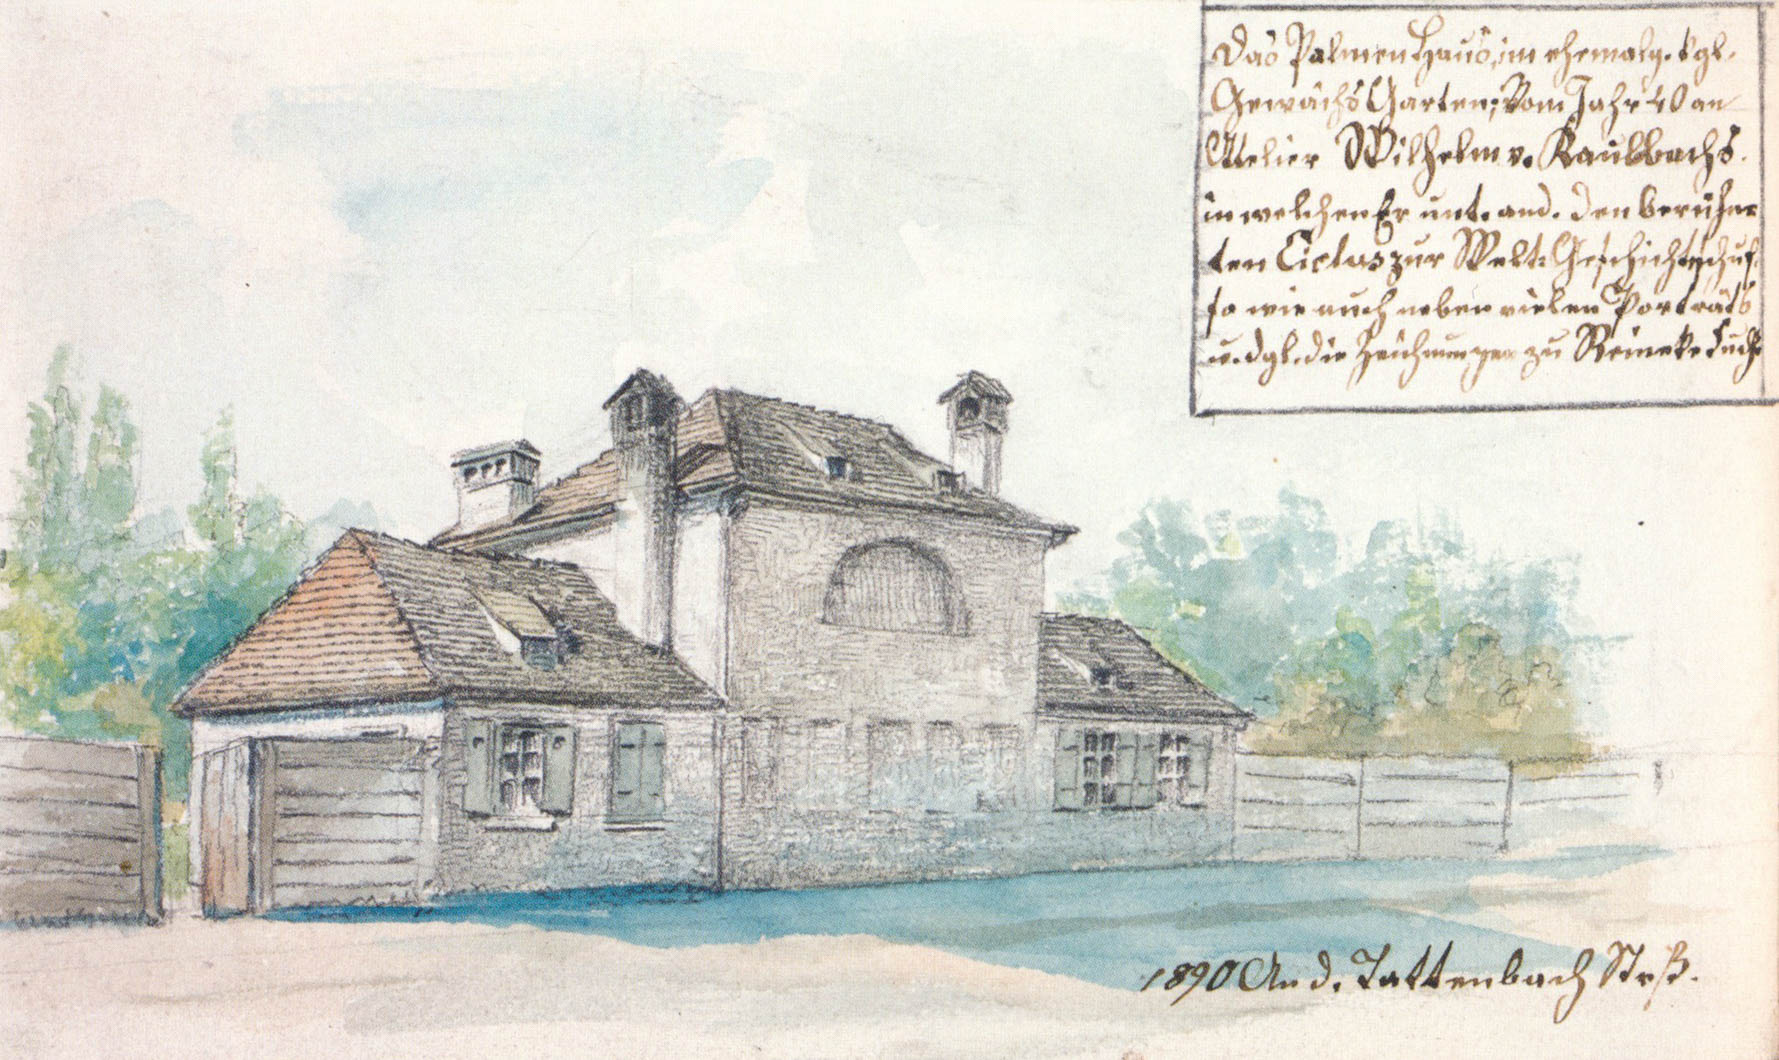 Das Palmen Haus, im ehemalg. kgl.
Gewächs Garten; Vom Jahr 40 an
Atelier Wilhelm v. Kaulbachs.
in welchen Er unt. and. den berühm
ten Ciclus zur Welt: Geschichte schuf.
so wie auch neben vielen Porträts
u. dgl. die Zeichnungen zu Reineke Fuchs
1890 And. Tattenbach Strß.